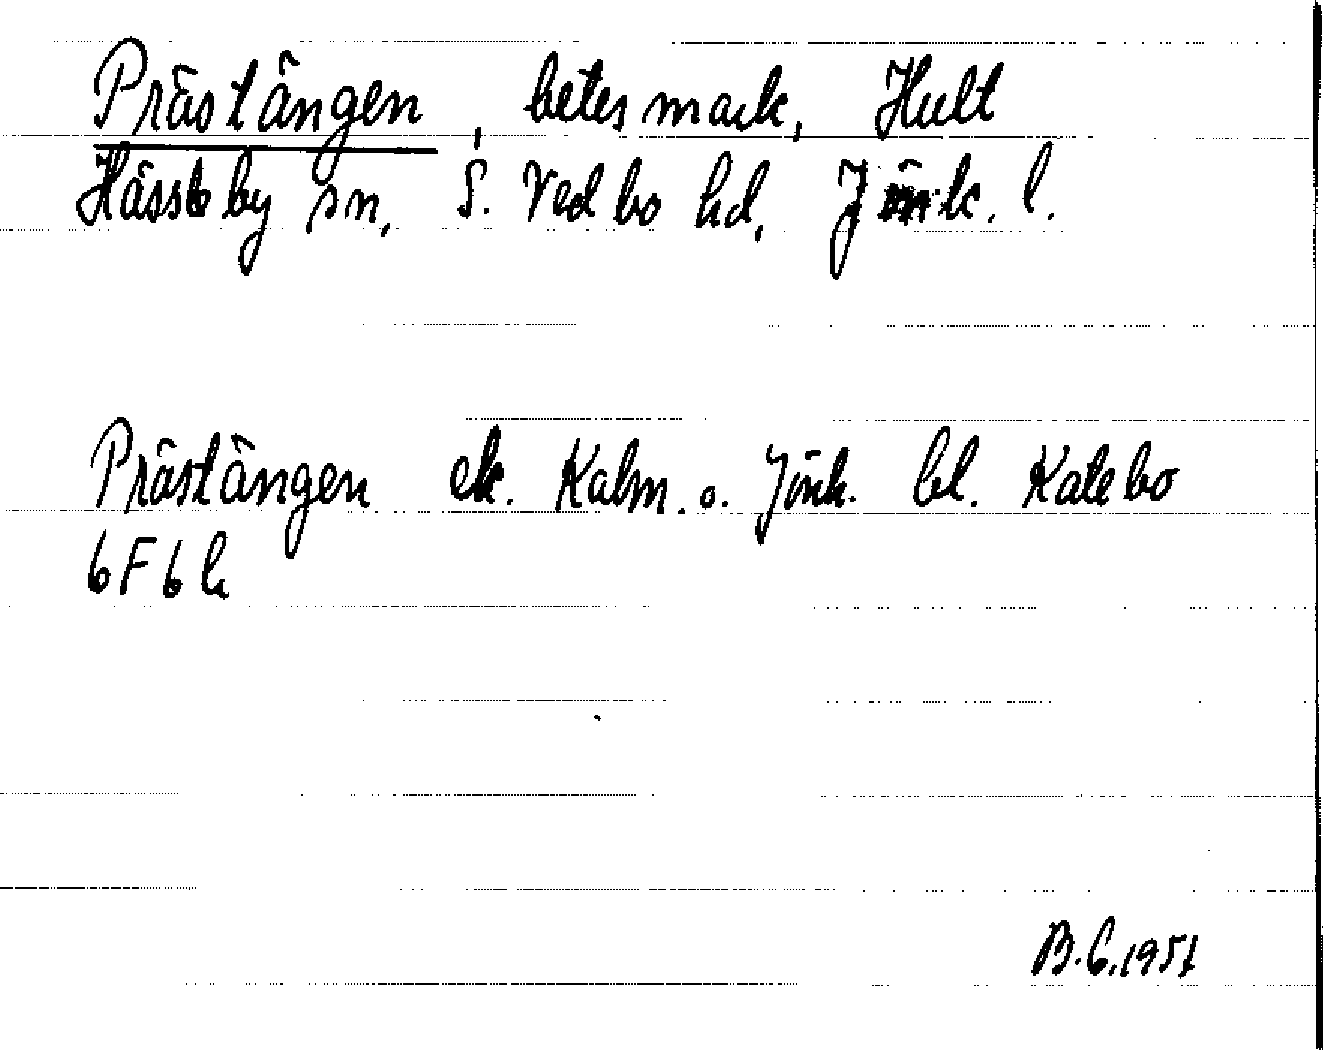 Prästängen, betesmark, Hult
Hässleby sn, S. Vedbo hd, Jönk. l.
Prästängen ek. Kalm. o. Jönk. bl. Katebo
6F6h
B.G.1951